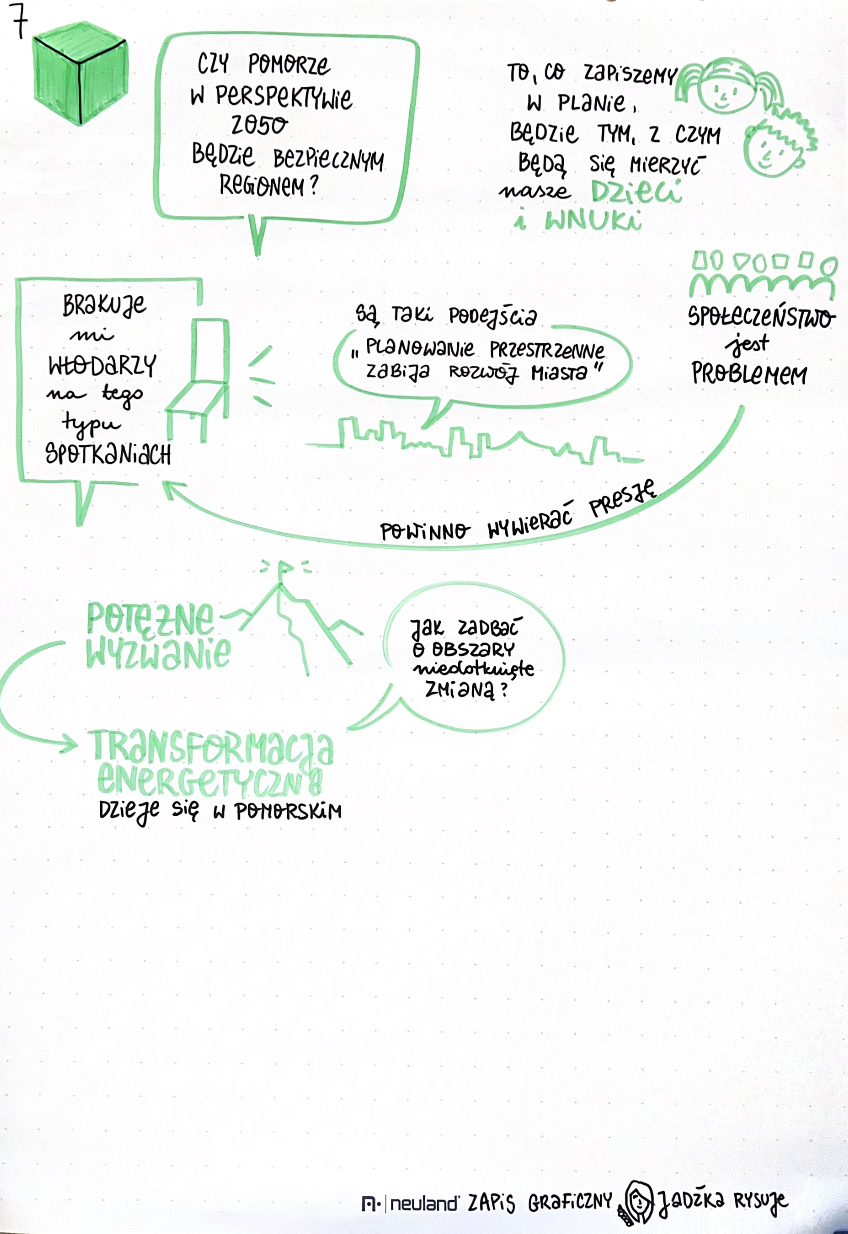 7
CZY POMORZE
W PERSPEKTYWIE
2050
BĘDZIE BEZPIECZNYM
REGIONEM?
TO, CO ZAPISZEMY
W PLANIE,
BĘDZIE TYM, Z CZYM
BĘDĄ SIĘ MIERZYĆ
nasze DZIECI
i WNUKI
BRAKUJE
mi
WŁODARZY
na tego
typu
SPOTKANIACH
SĄ TAKI PODEJŚCIA
"PLANOWANIE PRZESTRZENNE
ZABIJA ROZWÓJ MIASTA"
SPOŁECZEŃSTWO
jest
PROBLEMEM
POWINNO WYWIERAĆ PRESJĘ
POTĘŻNE
WYZWANIE
JAK ZADBAĆ
O OBSZARY
niedotknięte
ZMIANĄ?
TRANSFORMACJA
ENERGETYCZNA
DZIEJE SIĘ W POMORSKIM
neuland ZAPIS GRAFICZNY JADŹKA RYSUJE